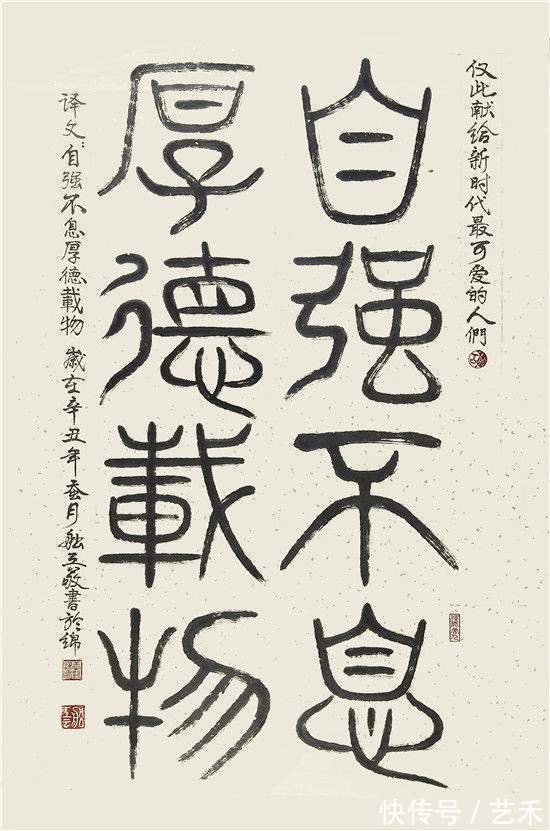 仅此献给新时代最可爱的人們
自强不息
厚德載物
译文：自强不息厚德載物 歲在辛丑年蚕月敬書於綿
快传号／艺禾